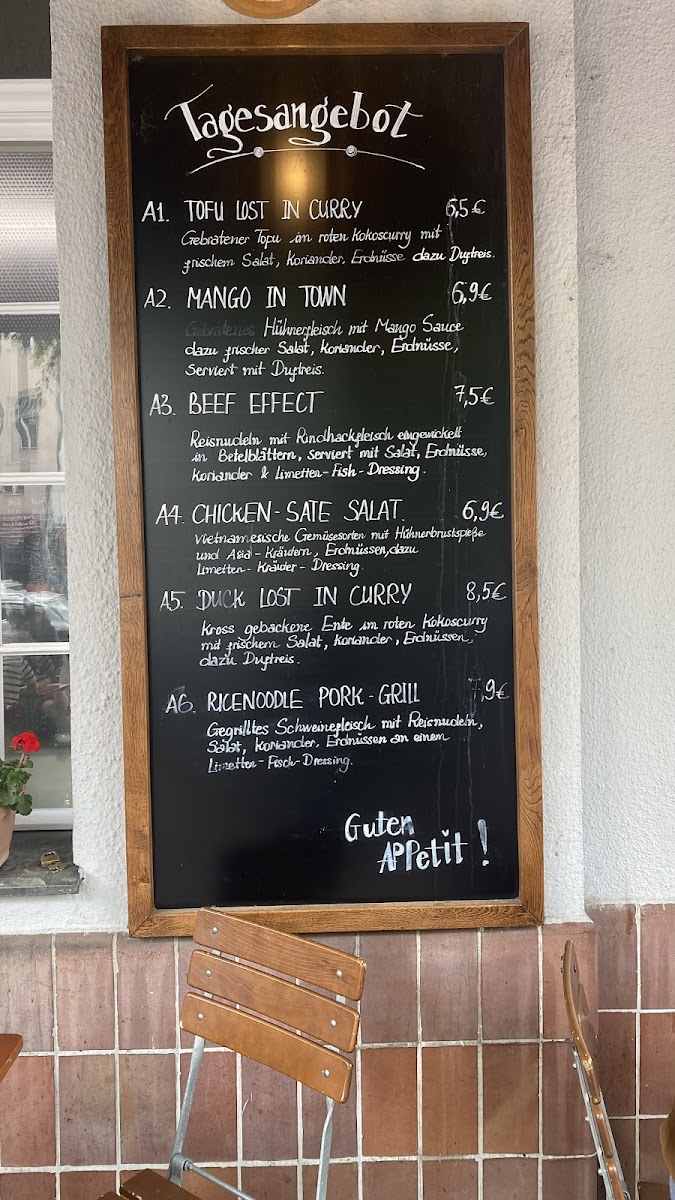 Tagesangebot
A1. TOFU LOST IN CURRY 6,5€
Gebratener Tofu im roten Kokoscurry mit
frischem Salat, Koriander, Erdnüsse dazu Duftreis.
A2. MANGO IN TOWN 6,9€
Gebratenes Hühnerfleisch mit Mango Sauce
dazu frischer Salat, Koriander, Erdnüsse,
Serviert mit Duftreis.
A3. BEEF EFFECT 7,5€
Reisnudeln mit Rindhackfleisch eingewickelt
in Betelblättern, serviert mit Salat, Erdnüsse,
Koriander & Limetten-Fish-Dressing.
A4. CHICKEN-SATE SALAT. 6,9€
Vietnamesische Gemüsesorten mit Hühnerbrustspieße
und Asia-Kräutern, Erdnüssen, dazu
Limetten-Kräuter-Dressing.
A5. DUCK LOST IN CURRY 8,5€
Kross gebackene Ente im roten Kokoscurry
mit frischem Salat, Koriander, Erdnüssen,
dazu Duftreis.
A6. RICENOODLE PORK-GRILL 7,9€
Gegrilltes Schweinefleisch mit Reisnudeln,
Salat, Koriander, Erdnüssen an einem
Limetten-Fisch-Dressing.
Guten
APPetit!